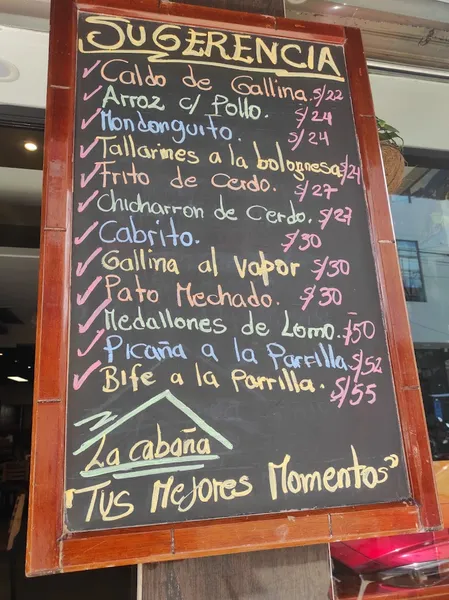 SUGERENCIA
✓ Caldo de Gallina. S/22
✓ Arroz c/ Pollo. S/24
✓ Mondonguito. S/24
✓ Tallarines a la bolognesa S/24
✓ Frito de Cerdo. S/27
✓ Chicharron de Cerdo. S/27
✓ Cabrito. S/30
✓ Gallina al vapor S/30
✓ Pato Mechado. S/30
✓ Medallones de Lomo. S/50
✓ Picaña a la Parrilla. S/52
✓ Bife a la Parrilla. S/55
La cabaña
"Tus Mejores Momentos"